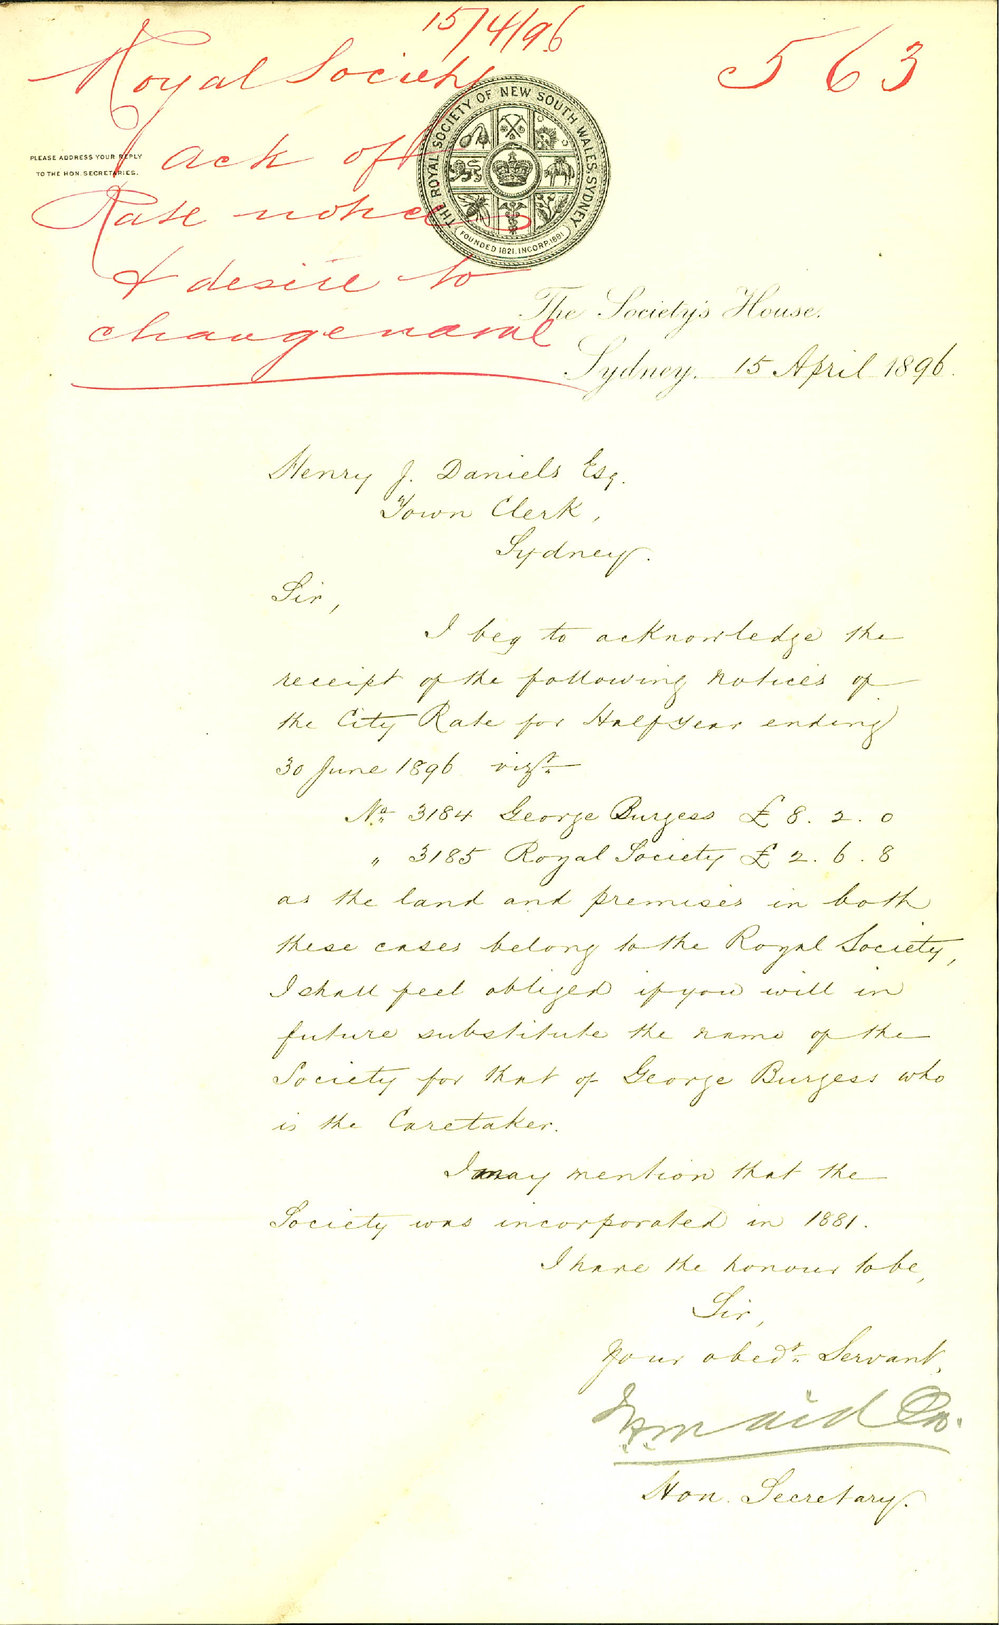 15/4/96
563
Royal Society
Ack of
Rate notices
& desire to
change name
PLEASE ADDRESS YOUR REPLY
TO THE HON. SECRETARIES.
THE ROYAL SOCIETY OF NEW SOUTH WALES, SYDNEY
FOUNDED 1821. INCORP. 1881
The Society's House.
Sydney. 15 April 1896.
Henry J. Daniels Esq.
Town Clerk,
Sydney.
Sir,
I beg to acknowledge the
receipt of the following notices of
the City Rate for Half Year ending
30 June 1896 vizt
No. 3184 George Burgess £ 8. 2. 0
" 3185 Royal Society £ 2. 6. 8
as the land and premises in both
these cases belong to the Royal Society,
I shall feel obliged if you will in
future substitute the name of the
Society for that of George Burgess who
is the Caretaker.
I may mention that the
Society was incorporated in 1881.
I have the honour to be,
Sir,
Your obedt. Servant,
Hon. Secretary.